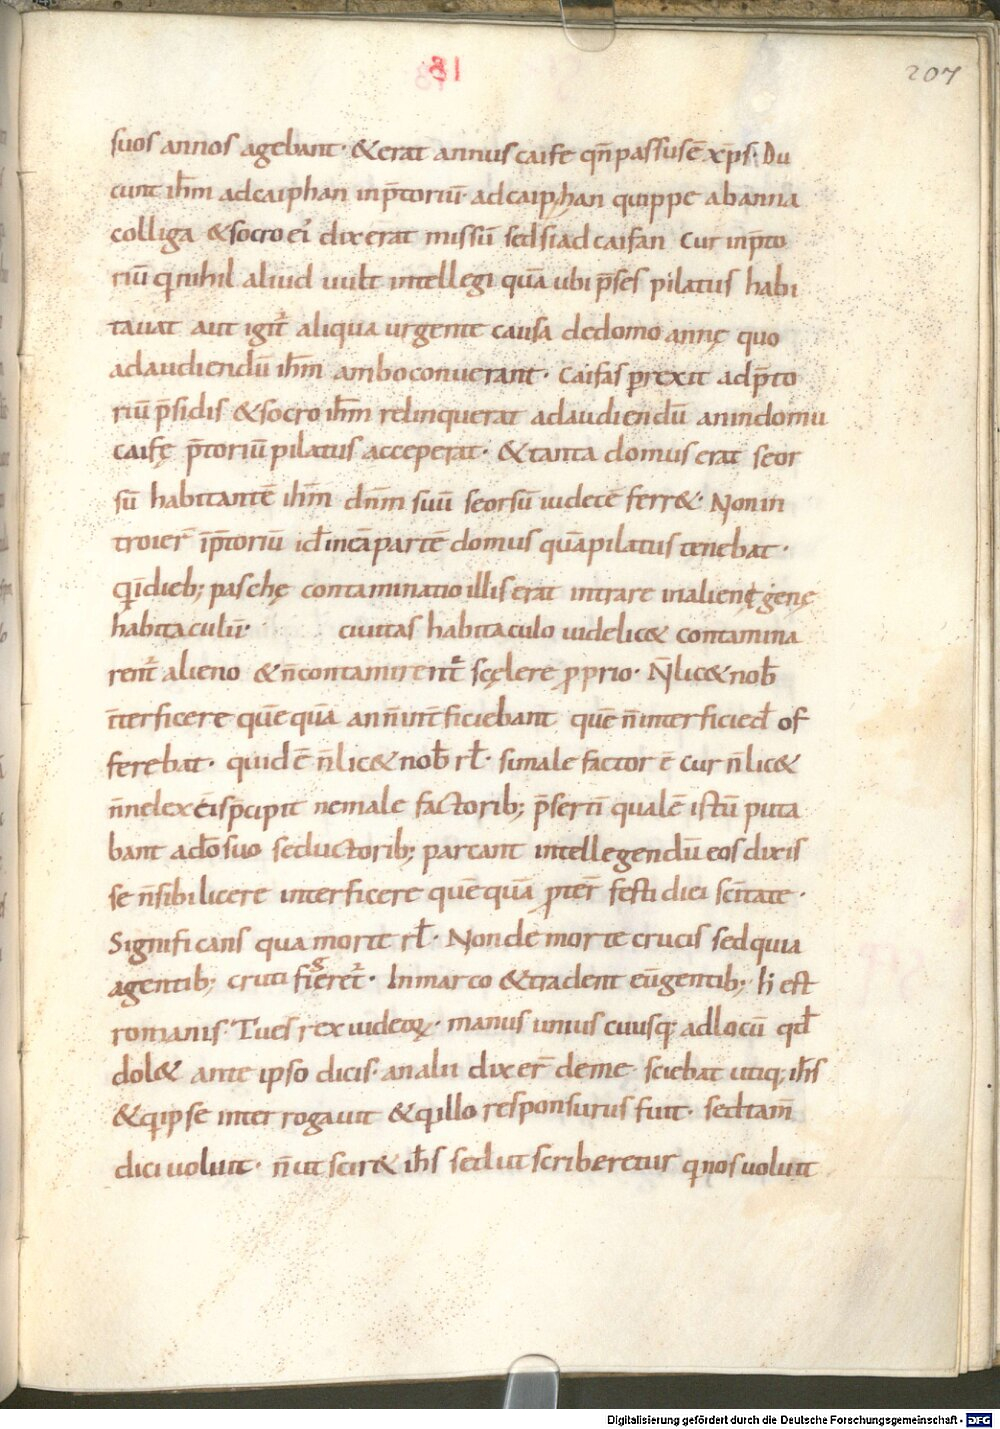 207
suos annos agebant· &erat annus caife qn̄passusē xp̄s· Du
cunt ih̄m adcaiphan inp̄toriū· adcaiphan quippe abanna
colliga &socro ei' dixerat missū sedsiad caifan cur inp̄to
riū qi nihil aliud uult intellegi quā ubi p̄ses pilatus habi
tauat aut igit̄ aliqua urgente causa dedomo annę quo
adaudiendū ih̄m amboconuerant· Caifas prexit adp̄to
riū p̄sidis &socro ih̄m relinquerat adaudiendū anindomu
caifę p̄toriū pilatus acceperat· &tanta domus erat seor
sū habitantē ih̄m dn̄m suū seorsū iudicē ferr&· Nonin
troier̄ īp̄toriū id̄ incāpartē domus quāpilatus tenebat·
qīdieb; paschę contaminatio illis erat intrare inalienę genę
habitaculū· ciuitas habitaculo uidelic& contamina
rent̄ alieno &n̄contamirent̄ scęlere pprio· N̄lic&nob̄
īterficere quēquā ann̄int̄ficiebant quē n̄interficied̄ of
ferebat· quid ē n̄lic&nob̄ rl̄· simale factor ē cur n̄lic&
n̄nelex eisp̄cipit nemale factorib; p̄sertī qualē istū puta
bant ad̄osuo seductorib; parcant intellegendū eos dixis
se n̄sibi licere interficere quēquā pter̄ festi diei scītate·
Significans qua morte rl̄· Non de morte crucis sedquia
agentib; cruci figeret̄· Inmarco &tradent eūgentib; h̄ est
romanis· Tu es rex iudeoꝝ· manus unius cuiusq; adlocū qd̄
dol& ante ipso dicis· analii dixer̄ deme sciebat utiq; ih̄s
&qipse inter rogauit &qillo responsurus fuit· sedtam̄
dici uoluit· n̄ut scir& ih̄s sedut scriberetur qnos uoluit
Digitalisierung gefördert durch die Deutsche Forschungsgemeinschaft - DFG